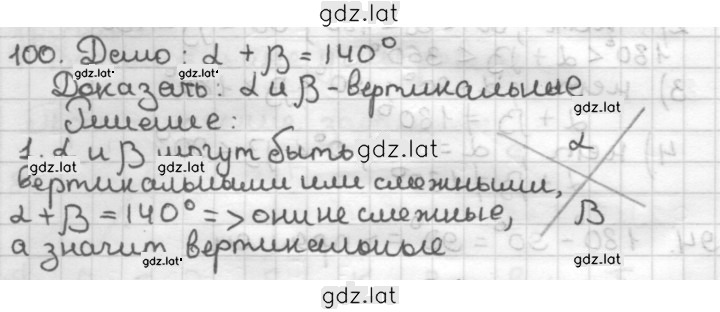 gdz.lat
100. Дано: α + β = 140°
gdz.lat gdz.lat
Доказать: α и β - вертикальные
gdz.lat
Решение:
1. α и β могут быть gdz.lat
α
вертикальными или смежными,
α + β = 140° => они не смежные,
β
а значит вертикальные
gdz.lat gdz.lat
gdz.lat